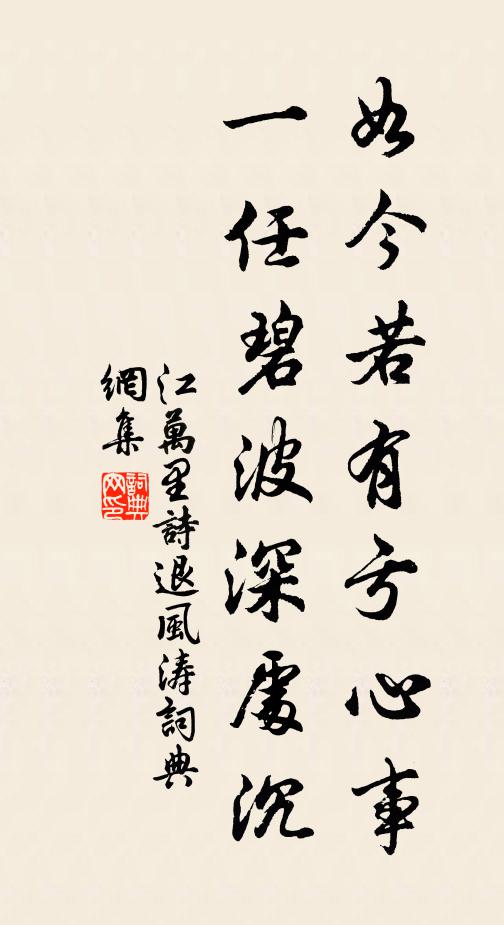 如今若有亏心事
一任碧波深處沉
江萬里詩退風涛詞典
網集
詞典
网印